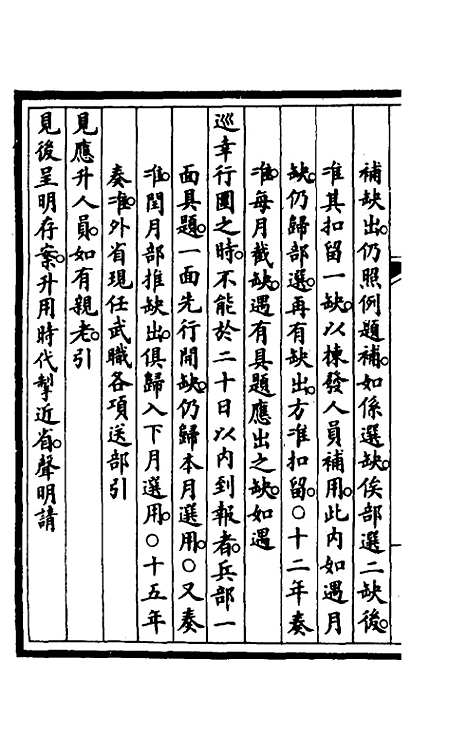 補缺出。仍照例題補。如係選缺。俟部選二缺後。
准其扣留一缺。以揀發人員補用。此內如遇月
缺。仍歸部選。再有缺出。方准扣留。○十二年奏
准。每月截缺。遇有具題應出之缺。如遇
巡幸行圍之時。不能於二十日以內到報者。兵部一
面具題。一面先行開缺。仍歸本月選用。○又奏
准。閏月部推缺出。俱歸入下月選用。○十五年
奏准。外省現任武職各項送部引
見應升人員。如有親老。引
見後呈明存案。升用時代掣近省。聲明請